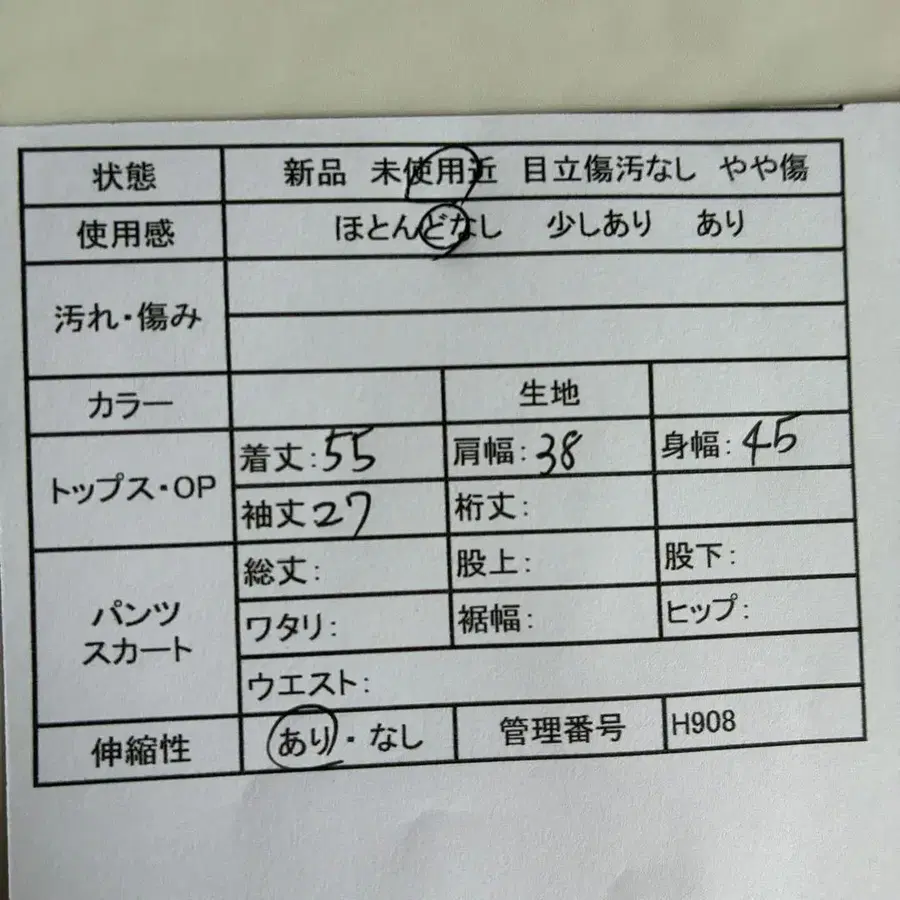 状態 新品 未使用近 目立傷汚なし やや傷
使用感 ほとんどなし 少しあり あり
汚れ・傷み
カラー 生地
トップス・OP 着丈:55 肩幅:38 身幅:45
袖丈27 裄丈:
パンツ スカート 総丈: 股上: 股下:
ワタリ: 裾幅: ヒップ:
ウエスト:
伸縮性 あり・なし 管理番号 H908